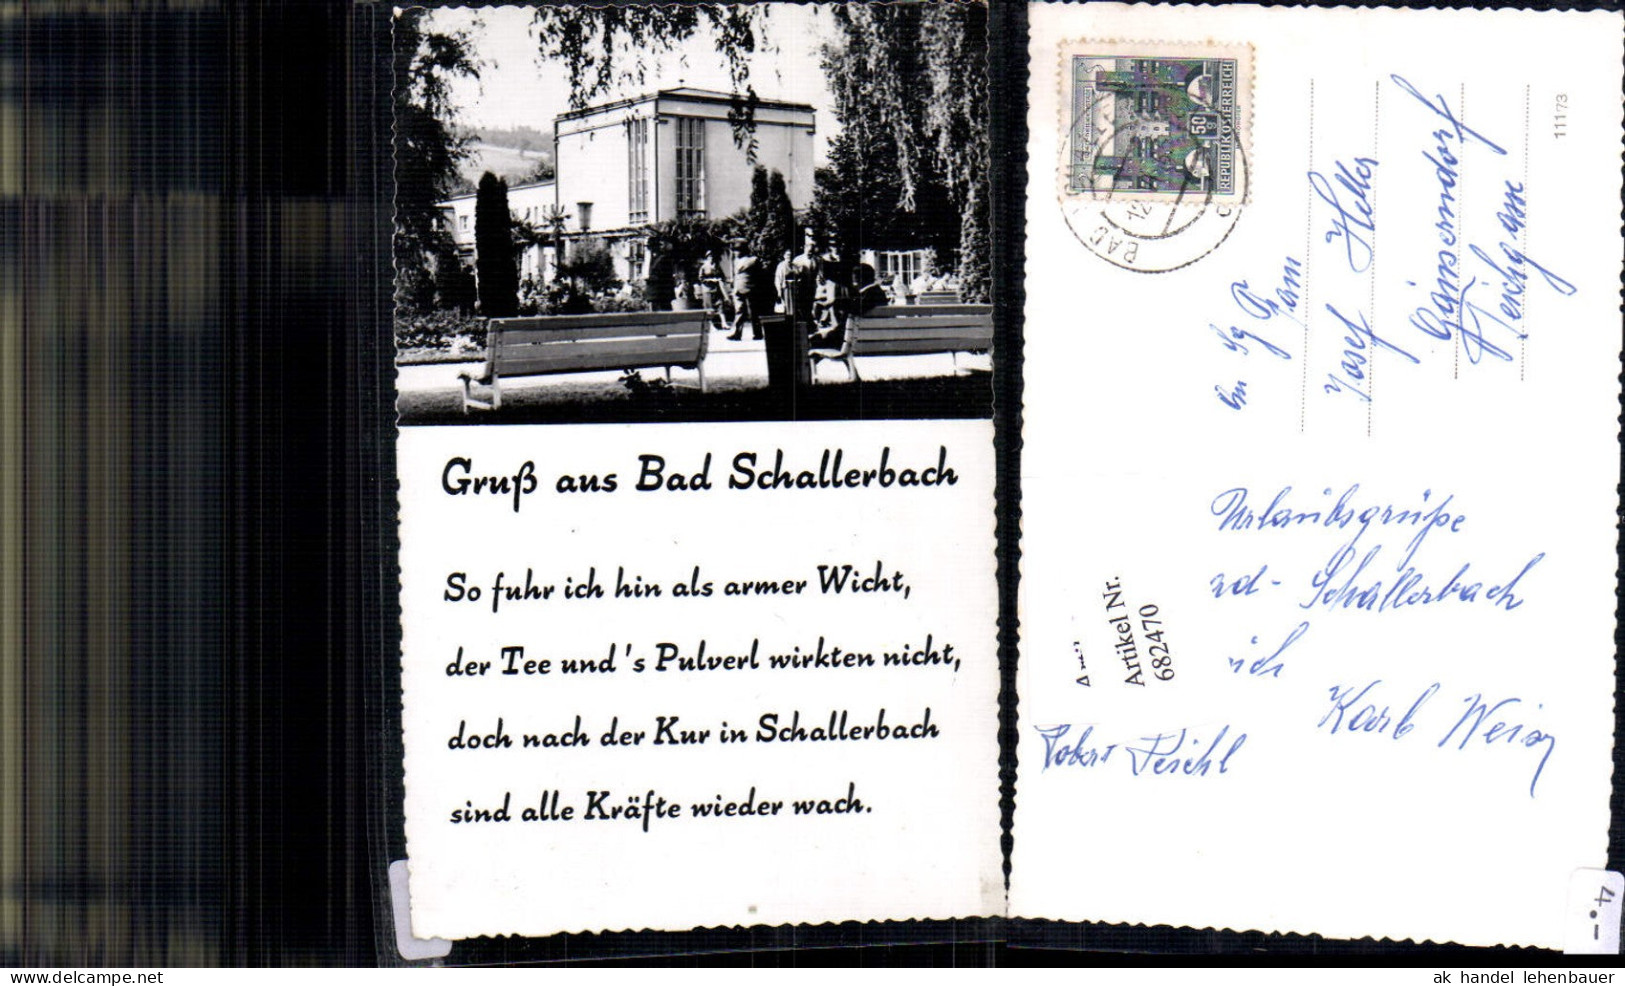 Gruß aus Bad Schallerbach
So fuhr ich hin als armer Wicht,
der Tee und 's Pulverl wirkten nicht,
doch nach der Kur in Schallerbach
sind alle Kräfte wieder wach.
50
REPUBLIK ÖSTERREICH
BAD
12
111173
Fam
Josef Heller
Gänserndorf
Teichgasse
Urlaubsgrüße
Schallerbach
Karl
Robert
Artikel Nr.
682470
4.-
www.delcampe.net
ak_handel_lehenbauer